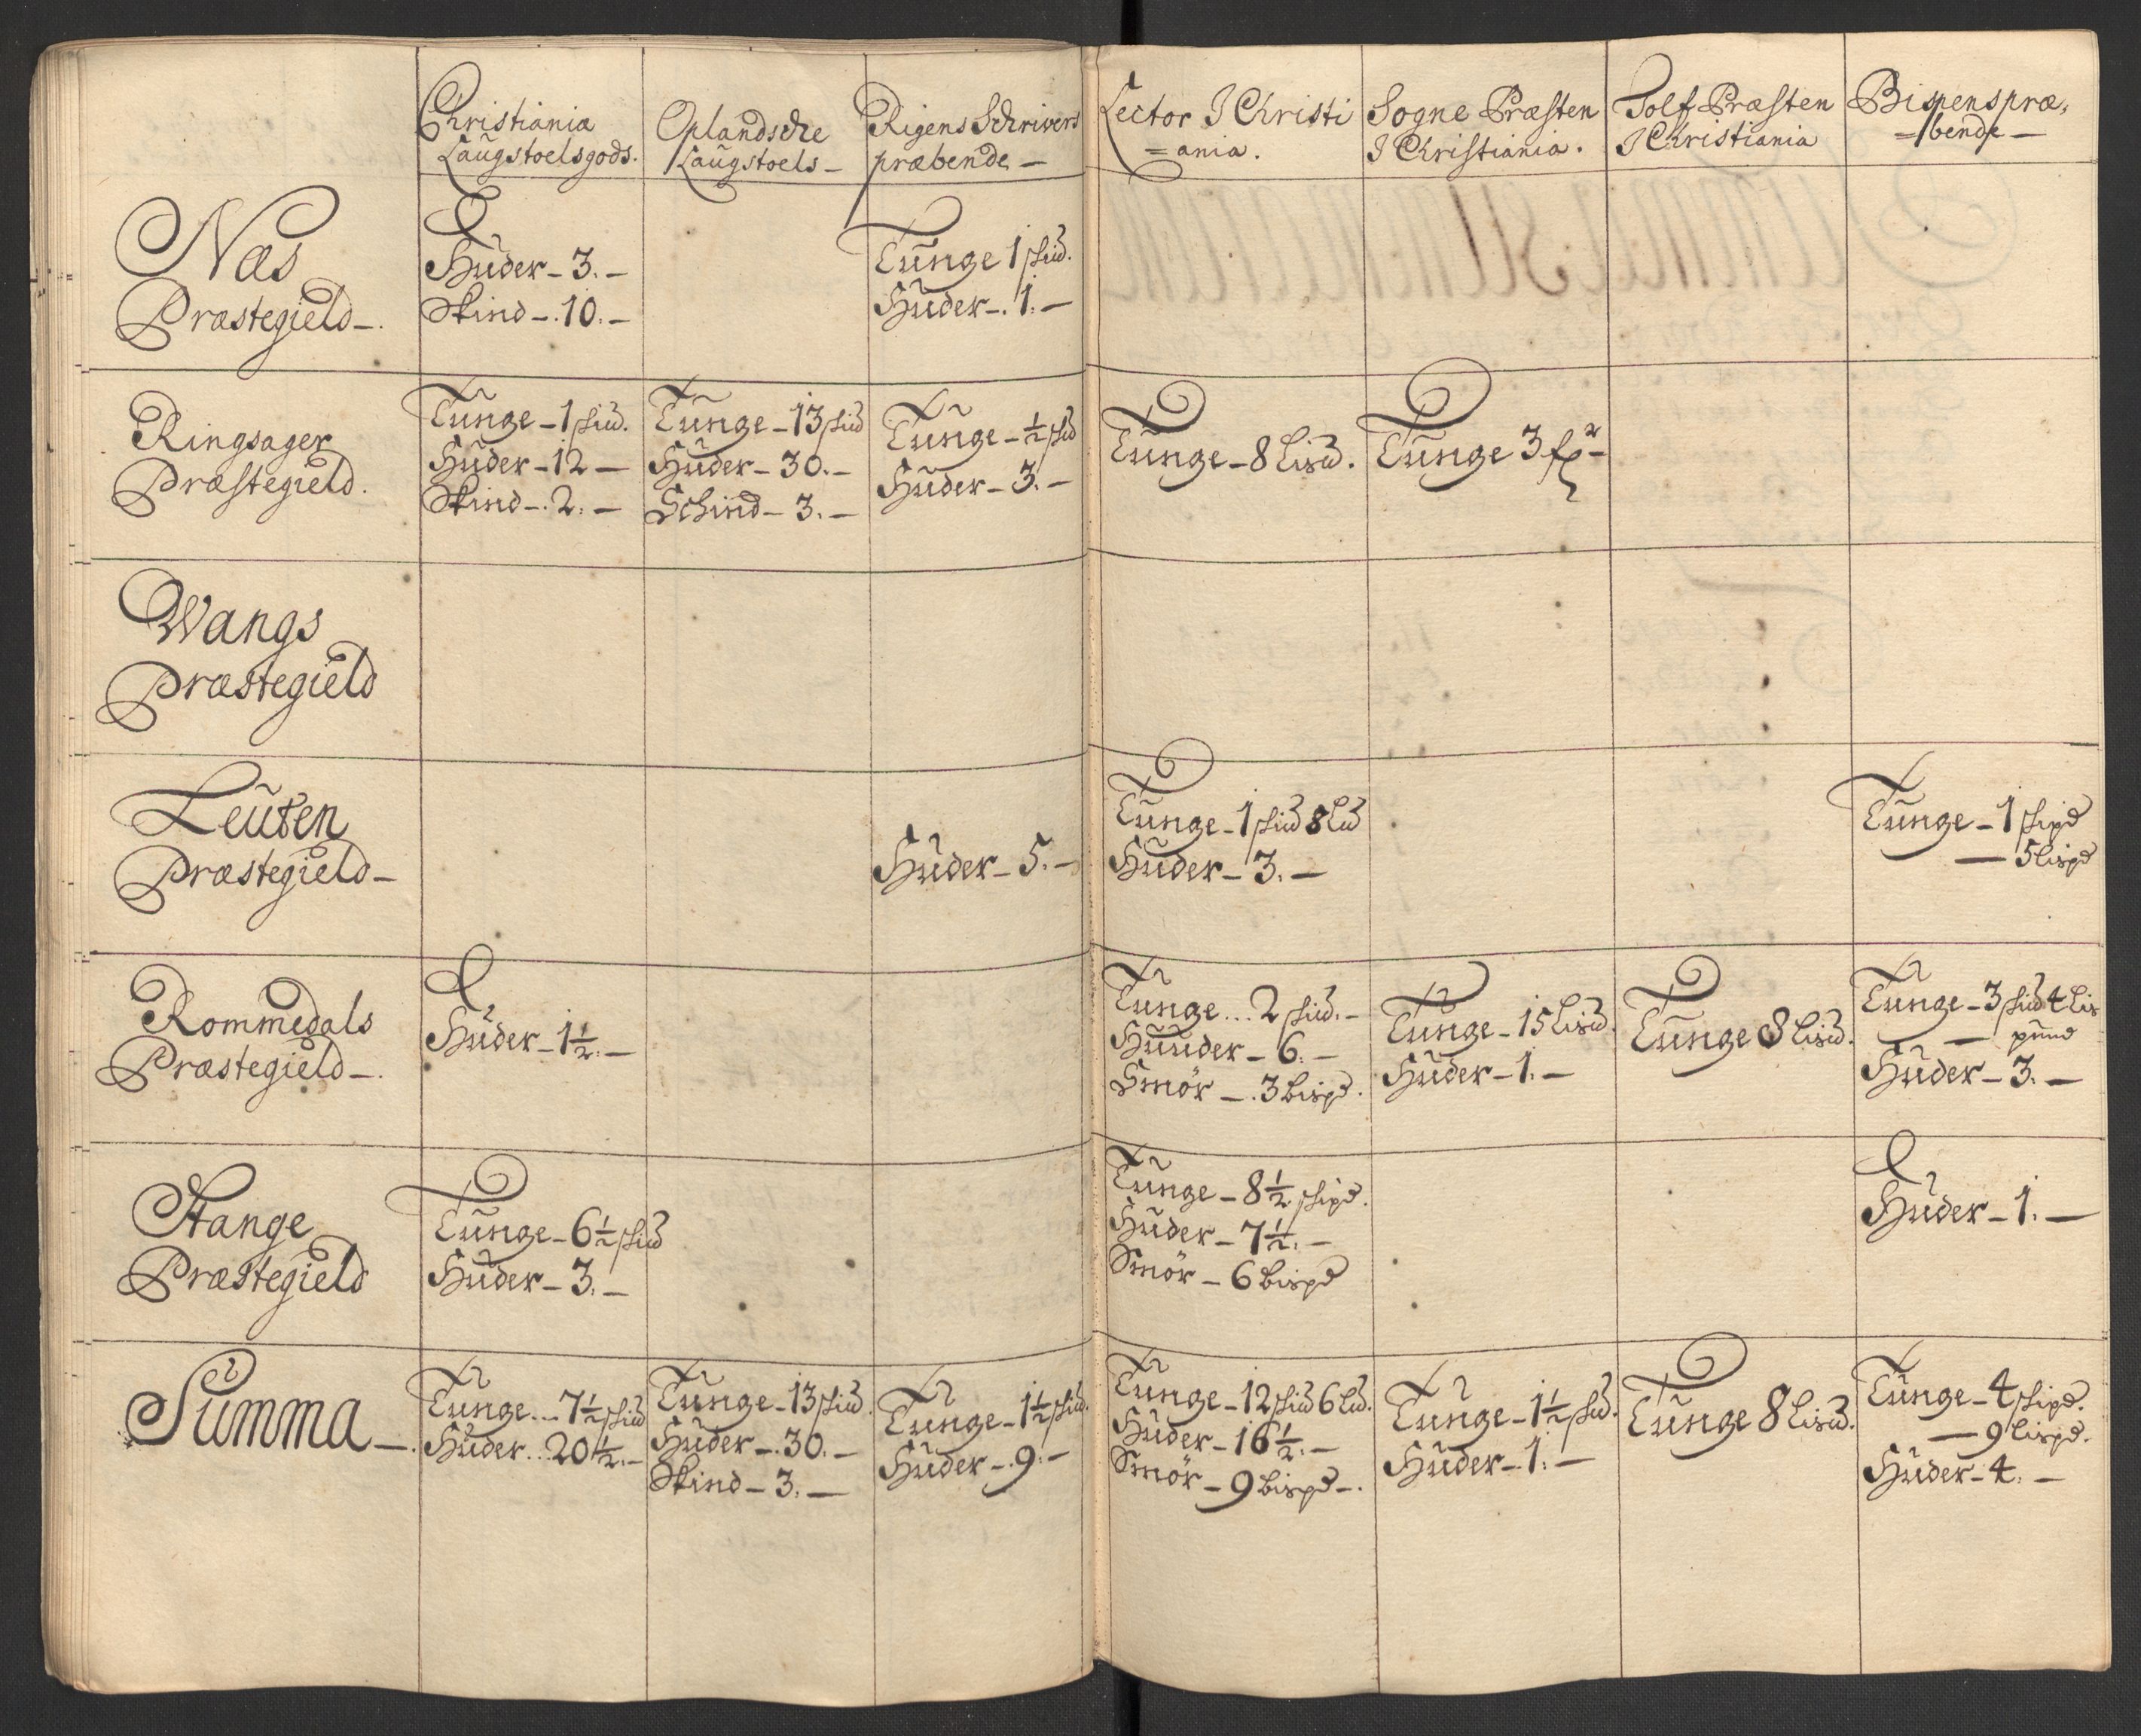 Christiania
Laugstoelsgods.
Oplandsche
Laugstoels –
Rigens Schrivers
præbende –
Lector I Christi
= ania.
Sogne Præsten
I Christiania.
Tolf Præsten
I Christiania
Bispens præ,
= bende –
Næs
Præstegield –.
Huder – 3. –
Skind –. 10. –
Tunge 1 skud.
Huder –. 1. –
Ringsager
Præstegield.
Tunge – 1 skud.
Huder – 12 –
Skind –. 2. –
Tunge – 13 skud
Huder – 30. –
Schind – 3. –
Tunge – ½ skud
Huder – 3. –
Tunge – 8 Lisd.
Tunge 3
Wangs
Præstegield
Leuten
Præstegield –
Huder – 5. –
Tunge – 1 skud 8 Lud
Huder – 3. –
Tunge – 1 skipd
– 5 lispd
Rommedals
Præstegield –.
Huder – 1½. –
Tunge... 2 skud. –
Huuder – 6. –
Smör –. 3 Bispd.
Tunge – 15 Lisd.
Huder – 1. –
Tunge 8 Lisd.
Tunge – 3 skud 4 Lis
– pund
Huder – 3. –
Stange
Præstegield
Tunge – 6½ skud
Huder – 3. –
Tunge – 8½ skipd.
Huder – 7½. –
Smör – 6 Bispd
Huder – 1. –
Summa –.
Tunge... 7½ skud
Huder... 20½. –
Tunge – 13 skud.
Huder –. 30. –
Skind – 3. –
Tunge – 1½ skud.
Huder –. 9. –
Tunge – 12 skud 6 Lud.
Huder – 16½. –
Smör – 9 bispd –.
Tunge – 1½ skud.
Huder – 1. –
Tunge 8 Lisd.
Tunge – 4 skipd.
– 9 lispd.
Huder – 4. –